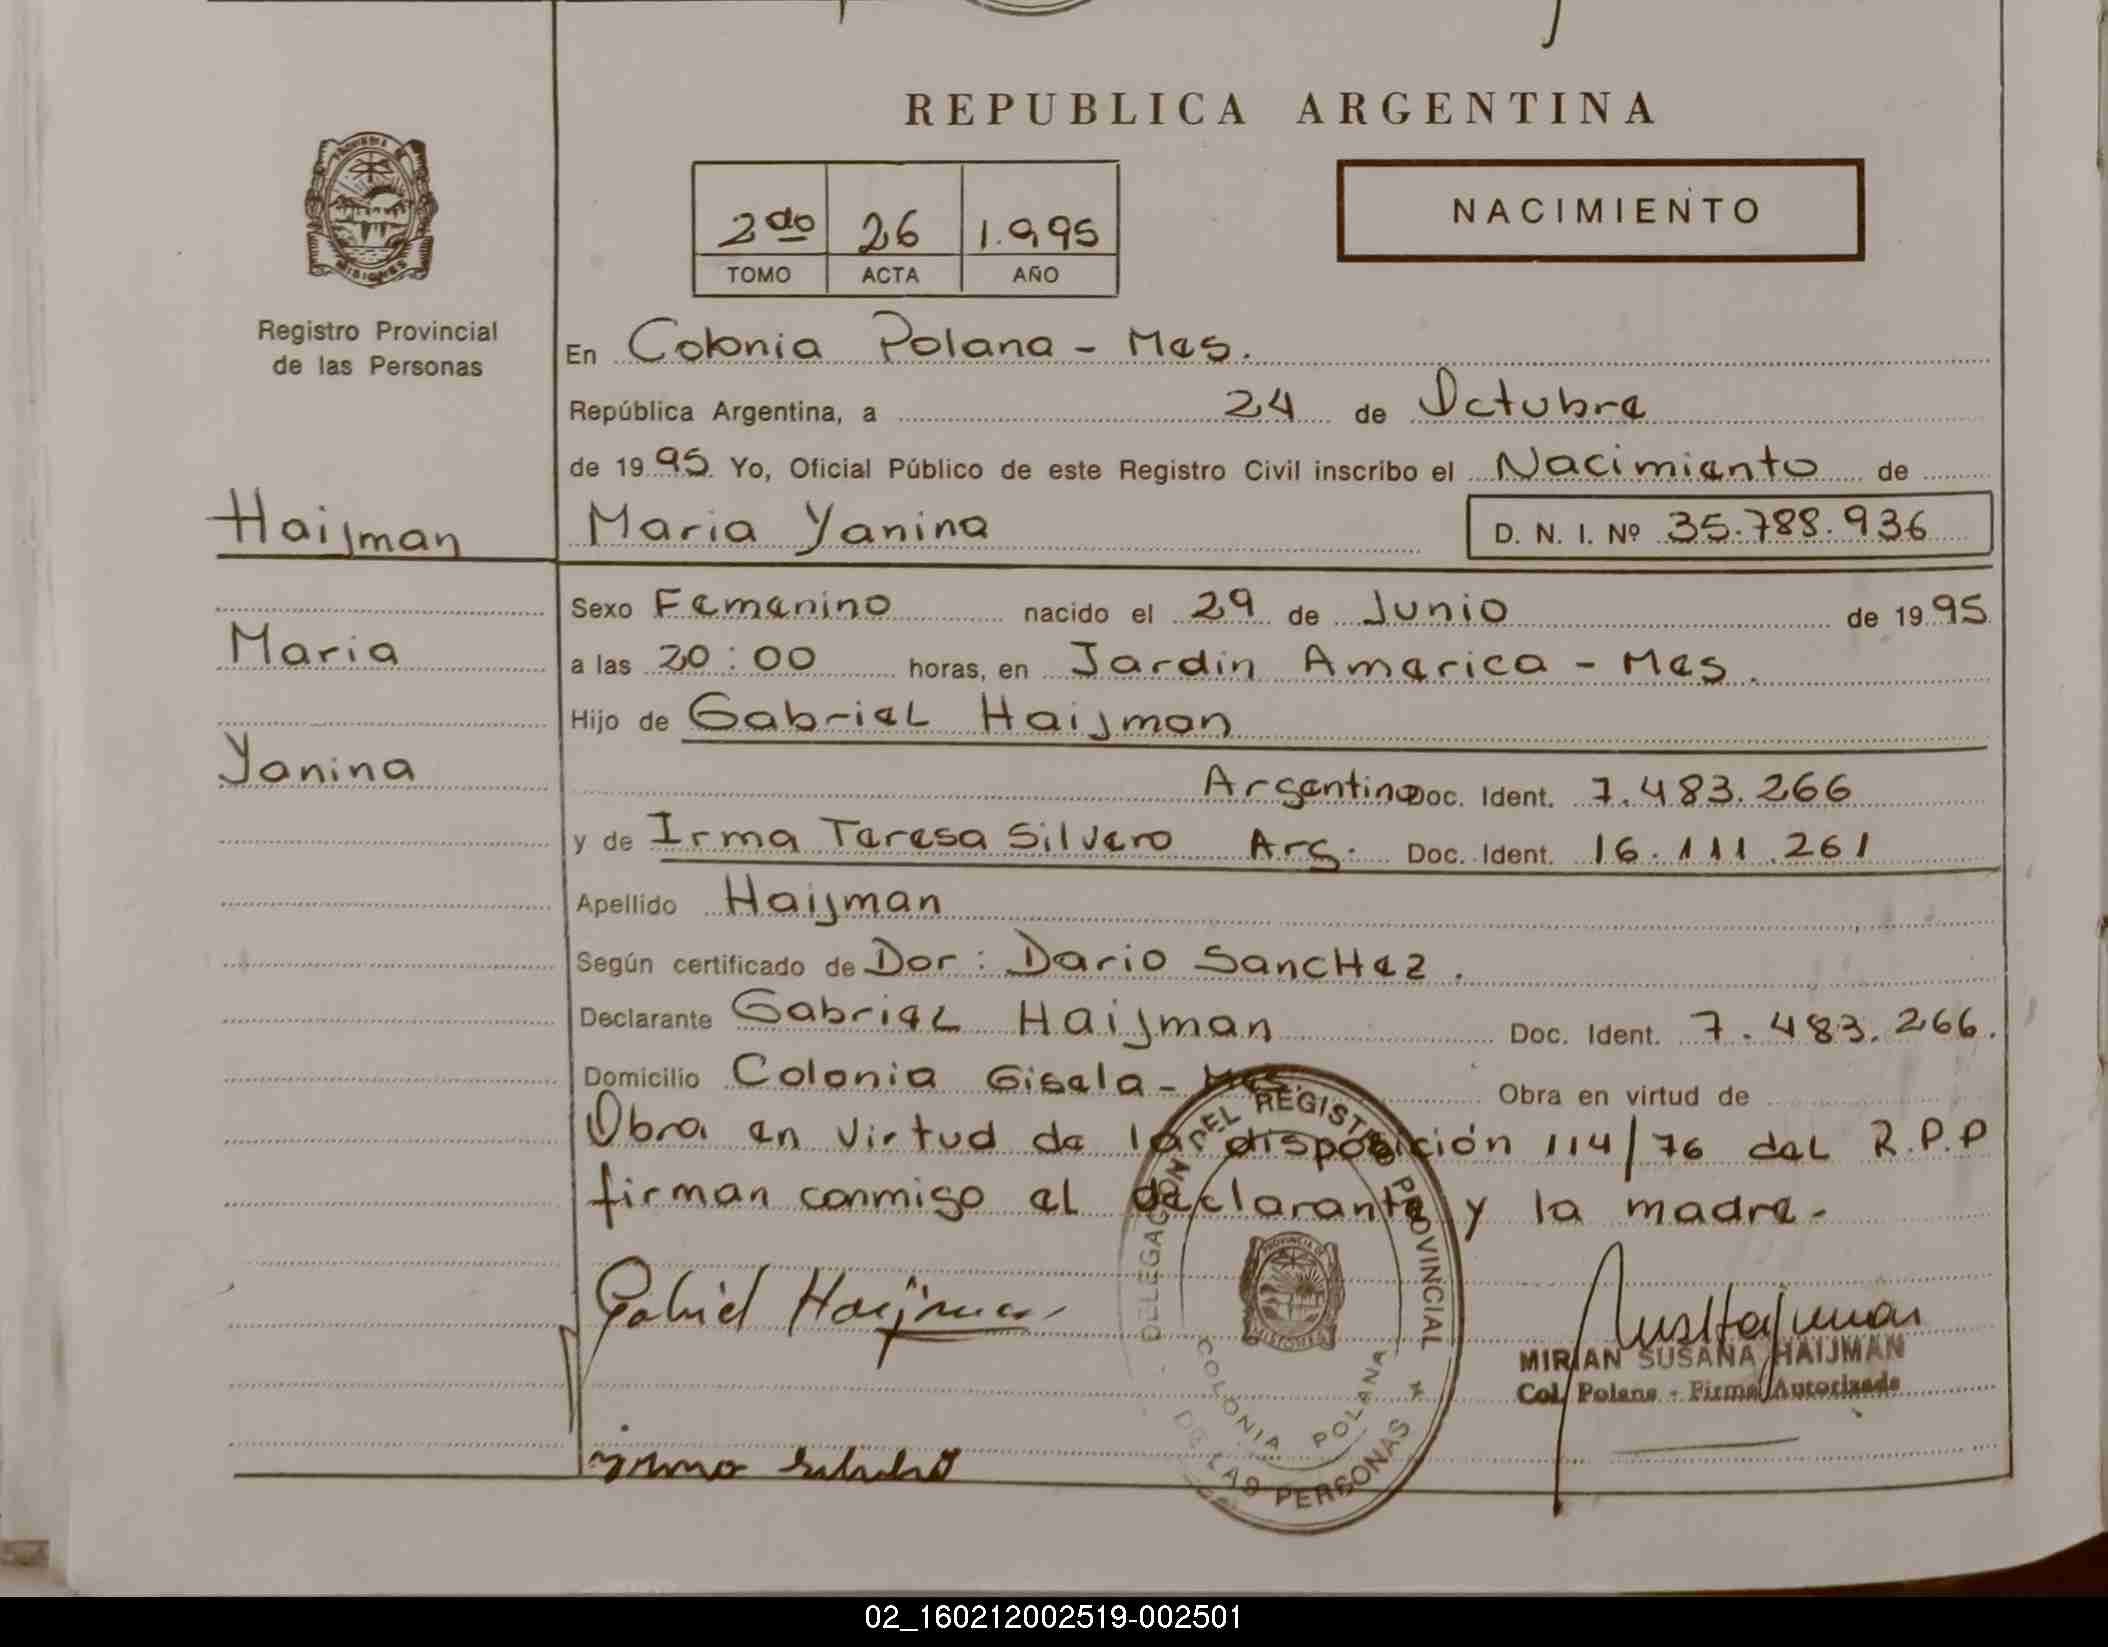 REPUBLICA ARGENTINA
2do 26 1.995
TOMO ACTA AÑO
NACIMIENTO
PROVINCIA DE
MISIONES
Registro Provincial
de las Personas
En Colonia Polana - Mes.
República Argentina, a 24 de Octubre
de 1995 Yo, Oficial Público de este Registro Civil inscribo el Nacimiento de
Haijman
Maria
Yanina
Maria Yanina D. N. I. Nº 35.788.936
Sexo Femenino nacido el 29 de Junio de 1995
a las 20:00 horas, en Jardin America - Mes.
Hijo de Gabriel Haijman
Argentino Doc. Ident. 7.483.266
y de Irma Teresa Silvero Arg. Doc. Ident. 16.111.261
Apellido Haijman
Según certificado de Dor: Dario Sanchez.
Declarante Gabriel Haijman Doc. Ident. 7.483.266.
Domicilio Colonia Gisela - Mes. Obra en virtud de
Obra en virtud de la disposición 114/76 del R.P.P
firman conmigo el declarante y la madre.
Gabriel Haijman
DELEGACION DEL REGISTRO PROVINCIAL
DE LAS PERSONAS
COLONIA POLANA
PROVINCIA DE
MISIONES
MIRIAN SUSANA HAIJMAN
Col. Polana - Firma Autorizada
02_160212002519-002501